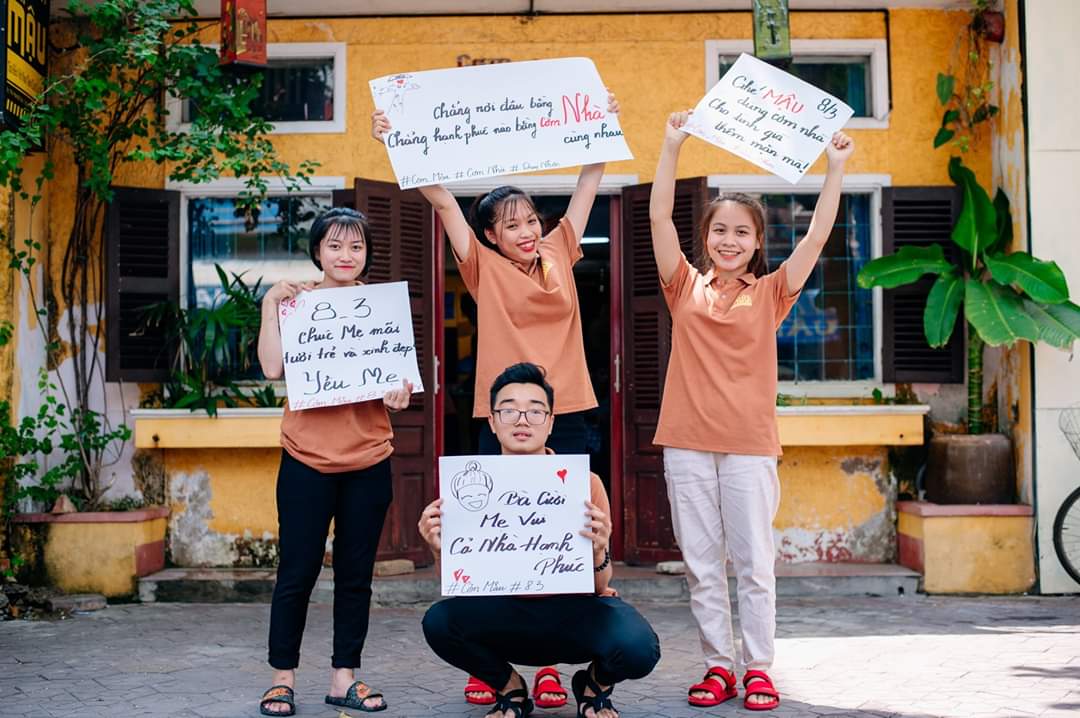 MẬU
Chẳng nơi đâu bằng Nhà
Chẳng hạnh phúc nào bằng cơm
cùng nhau
#Cơm Mậu #Cơm Nhà #Duy Nhân
Ghé MẬU 8/3
dùng cơm nhà
Cho tình già
thêm mặn mà!
8_3
Chúc Mẹ mãi
tươi trẻ và xinh đẹp
Yêu Mẹ
Bà Cười
Mẹ Vui
Cả Nhà Hạnh
Phúc
#Cơm Mậu #8 3